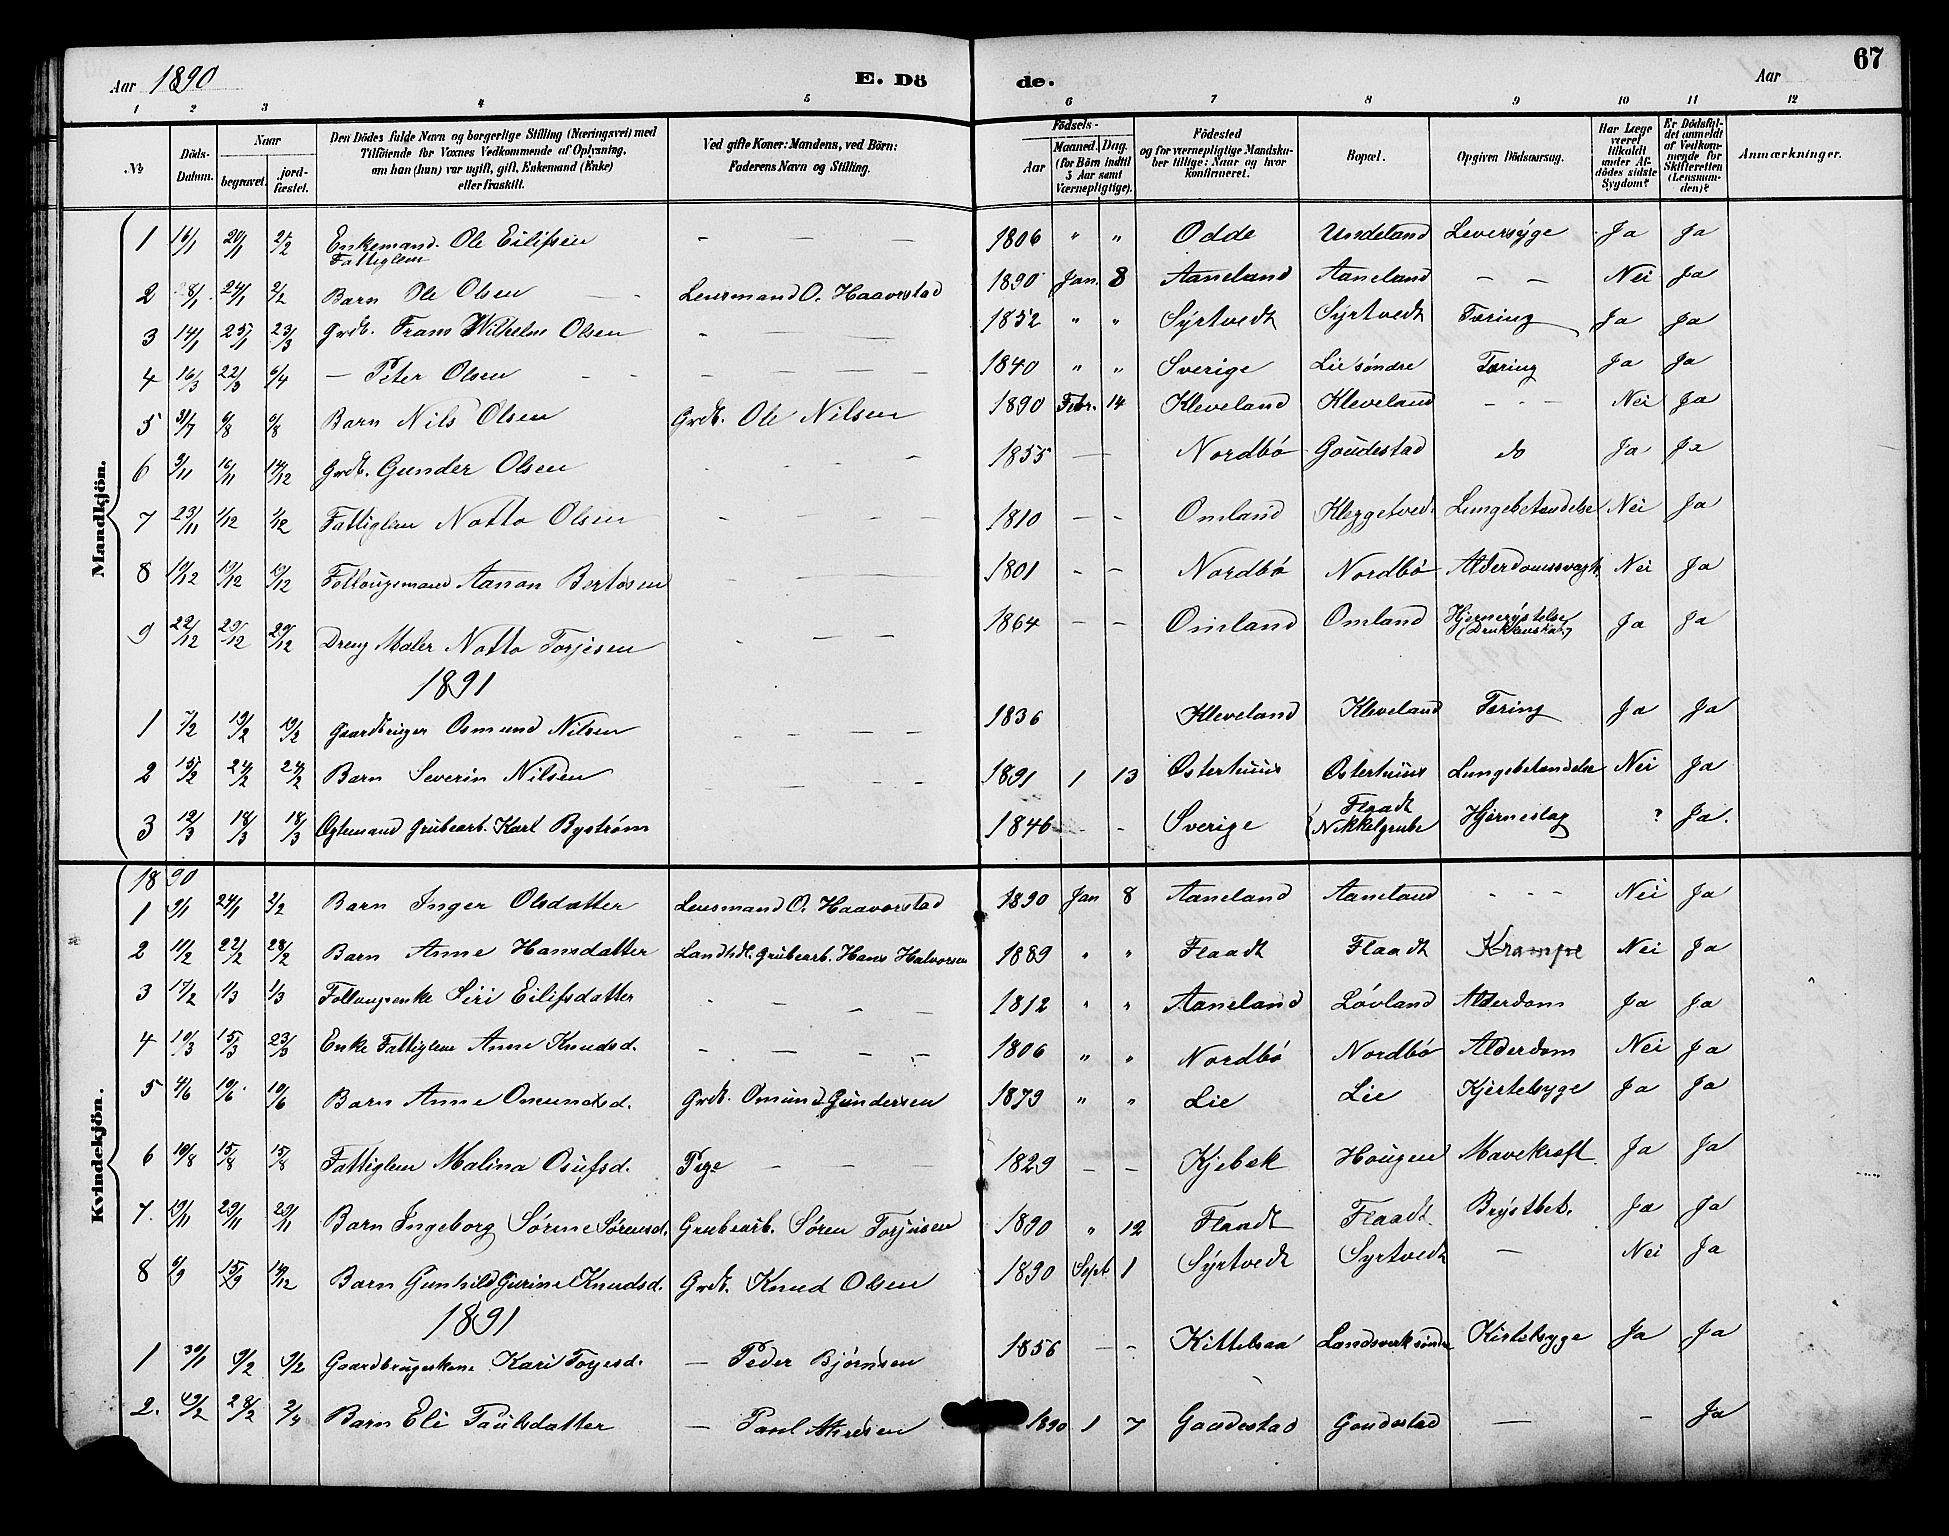 67
Aar 1890 E. Dö de. Aar
1 2 3 4 5 6 7 8 9 10 11 12
№ Döds-Datum. Naar begravet. jord-fæstet. Den Dödes fulde Navn og borgerlige Stilling (Næringsvei) med Tilföiende for Voxnes Vedkommende af Oplysning, om han (hun) var ugift, gift, Enkemand (Enke) eller fraskilt. Ved gifte Koner: Mandens, ved Börn: Faderens Navn og Stilling. Födsels- Aar Maaned. Dag. (for Börn indtil 5 Aar samt Værnepligtige). Födested og for værnepligtige Mandskaber tillige: Naar og hvor konfirmeret. Bopæl. Opgiven Dödsaarsag. Har Læge været tilkaldt under Afdödes sidste Sygdom? Er Dödsfaldet anmeldt af Vedkommende for Skifteretten (Lensmanden)? Anmærkninger.
Mandkjön.
1 16/1 20/1 2/2 Enkemand. Ole Eilifsen - - - 1806 " " Odde Undeland Leversyge Ja Ja
Fattiglem
2 8/1 24/1 2/2 Barn Ole Olsen Lensmand O. Haaverstad 1890 Jan. 8 Aaneland Aaneland - - Nei Ja
3 14/1 25/1 23/3 Grdb. Frans Wilhelm Olsen - - 1852 " " Syrtvedt Syrtvedt Tæring Ja Ja
4 16/3 22/3 6/4 - Peter Olsen - - - - 1840 " " Sverige Lie søndre Tæring Ja Ja
5 31/7 6/8 6/8 Barn Nils Olsen Grdb. Ole Nilsen 1890 Febr. 14 Kleveland Kleveland - - - Nei Ja
6 3/11 10/11 14/12 Grdb. Gunder Olsen - - - 1855 - Nordbø Goudestad do Ja Ja
7 23/11 1/12 1/12 Fattiglem Notto Olsen - - - 1810 - - Omland Kleggetvedt Lungebetændelse Nei Ja
8 10/12 19/12 19/12 Follougsmand Aanon Bertosen - - - 1801 - - Nordbø Nordbø Alderdomssvagh. Nei Ja
9 22/12 29/12 29/12 Dreng Maler Notto Torjesen - - - 1864 - - Omland Omland Hjernerystelse Ja Ja
1891
1 7/2 19/2 19/2 Gaardbruger Osmund Nilsen - - - - 1836 Kleveland Kleveland Tæring Ja Ja
2 15/2 24/2 24/2 Barn Severin Nilsen - - - - 1891 1 13 Osterhuus Osterhuus Lungebetændelse Nei Ja
3 12/3 18/3 18/3 Ogtemand Grubearb. Karl Byström 1846 - - Sverige Flaadt Nikkelgrube Hjerneslag ? Ja.
Kvindekjön.
1890
1 9/1 24/1 2/2 Barn Inger Olsdatter Lensmand O. Haaverstad 1890 Jan 8 Aaneland Aaneland - - - Nei Ja
2 11/2 22/2 28/2 Barn Anne Hansdatter Landhdl. Grubearb. Hans Halvorsen 1889 " " Flaadt Flaadt Krampe Nei Ja
3 17/2 1/3 1/3 Follougsenke Siri Eilifsdatter - - - 1812 " " Aaneland Løvland Alderdom Ja Ja
4 10/3 15/3 23/3 Enke Fattiglem Anne Knudsd. - - - - 1806 " " Nordbø Nordbø Alderdom Nei Ja
5 4/6 10/6 10/6 Barn Anne Omundsd. Grdb. Omund Gundersen 1879 " " Lie Lie Kjertelsyge Ja Ja
6 10/8 15/8 15/8 Fattiglem Malina Osufsd. Pige - - - 1829 - - Kjebek Hougen Mavekræft. Ja Ja
7. 19/11 29/11 29/11 Barn Ingeborg Sørine Sørensd. Grubearb. Søren Torjusen 1890 " 12 Flaadt Flaadt Brystbet. Ja Ja
8 6/9 15/9 14/12 Barn Gunhild Gurine Knudsd. Grdb. Knud Olsen 1890 Sept 1 Syrtvedt Syrtvedt - Nei Ja
1891
1 30/1 9/2 9/2 Gaardbrugerkone Kari Torjesd. - Peder Bjørnsen 1856 - - Kittelsaa Landsverk søndre Kirtelsyge Ja Ja
2. 28/2 2/4 Barn Eli Paulsdatter - Paul 1890 1 7 Gaudestad Goudestad - - Ja